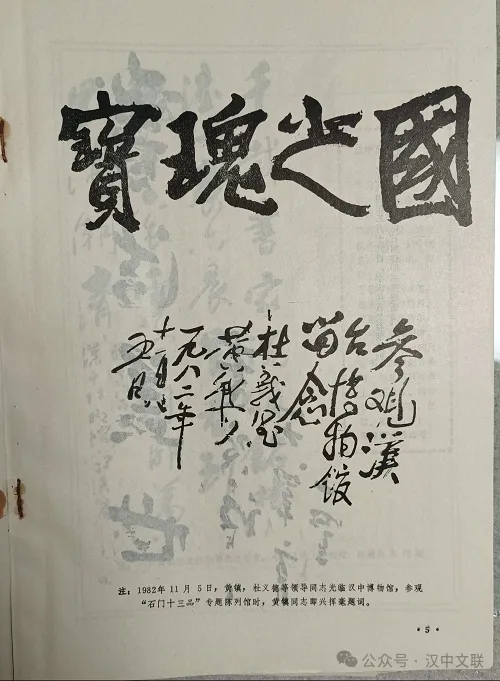 國之瑰寶
参观漢
台博物馆
留念
杜義德
一九八二年
十一月
五日
注：1982年11月5日，黄镇，杜义德等领导同志光临汉中博物馆，参观
“石门十三品”专题陈列馆时，黄镇同志即兴挥毫题词。
·5·
公众号·汉中文联